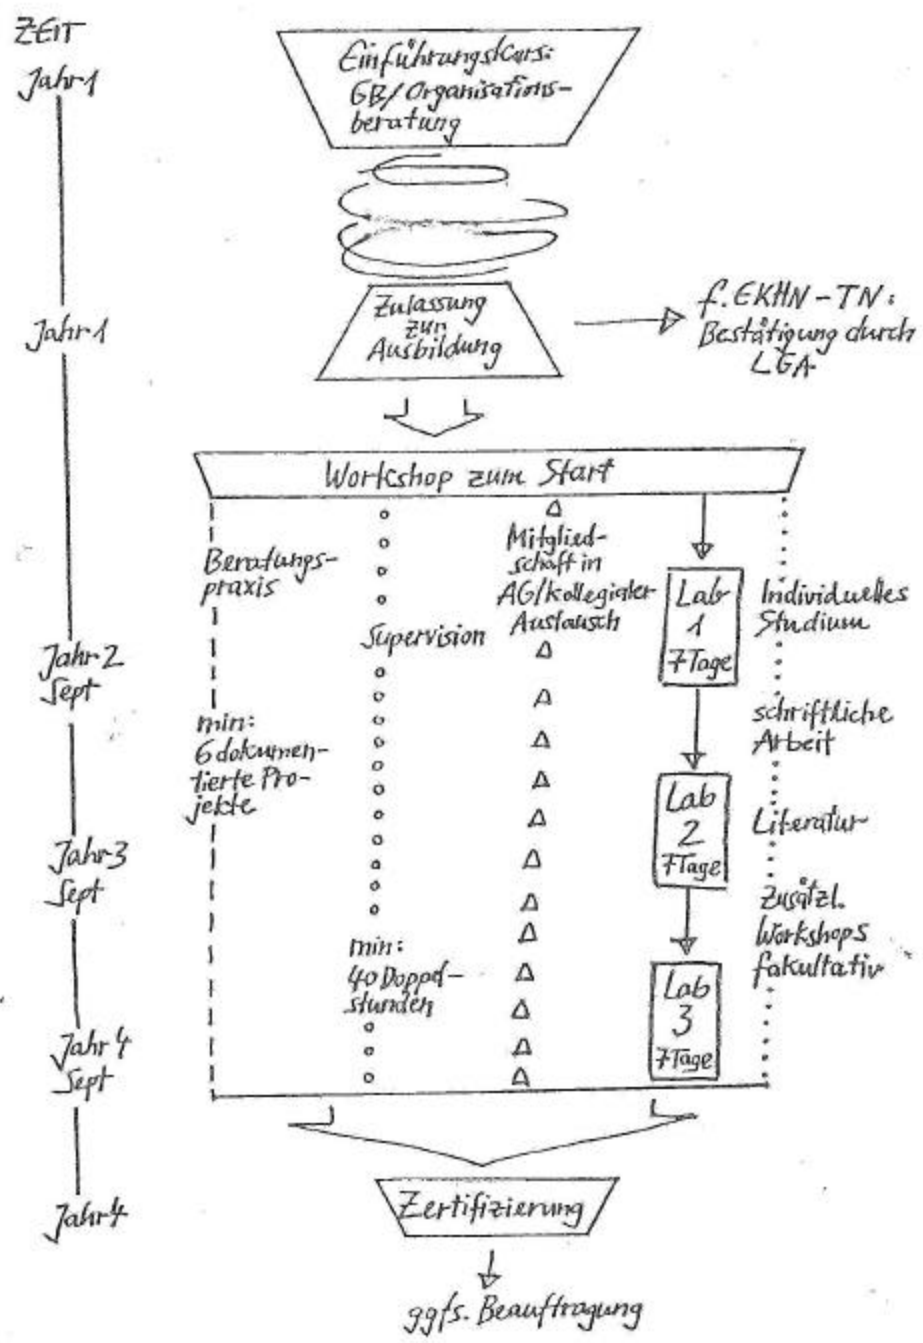 ZEIT
Jahr 1
Einführungskurs:
GB/Organisations-
beratung
Jahr 1
Zulassung
zur
Ausbildung
f. EKHN-TN:
Bestätigung durch
LGA
Workshop zum Start
Beratungs-
praxis
min:
6 dokumen-
tierte Pro-
jekte
Supervision
min:
40 Doppel-
stunden
Mitglied-
schaft in
AG/kollegialer
Austausch
Lab
1
7 Tage
Lab
2
7 Tage
Lab
3
7 Tage
Individuelles
Studium
schriftliche
Arbeit
Literatur
Zusätzl.
Workshops
fakultativ
Jahr 2
Sept
Jahr 3
Sept
Jahr 4
Sept
Jahr 4
Zertifizierung
ggfs. Beauftragung